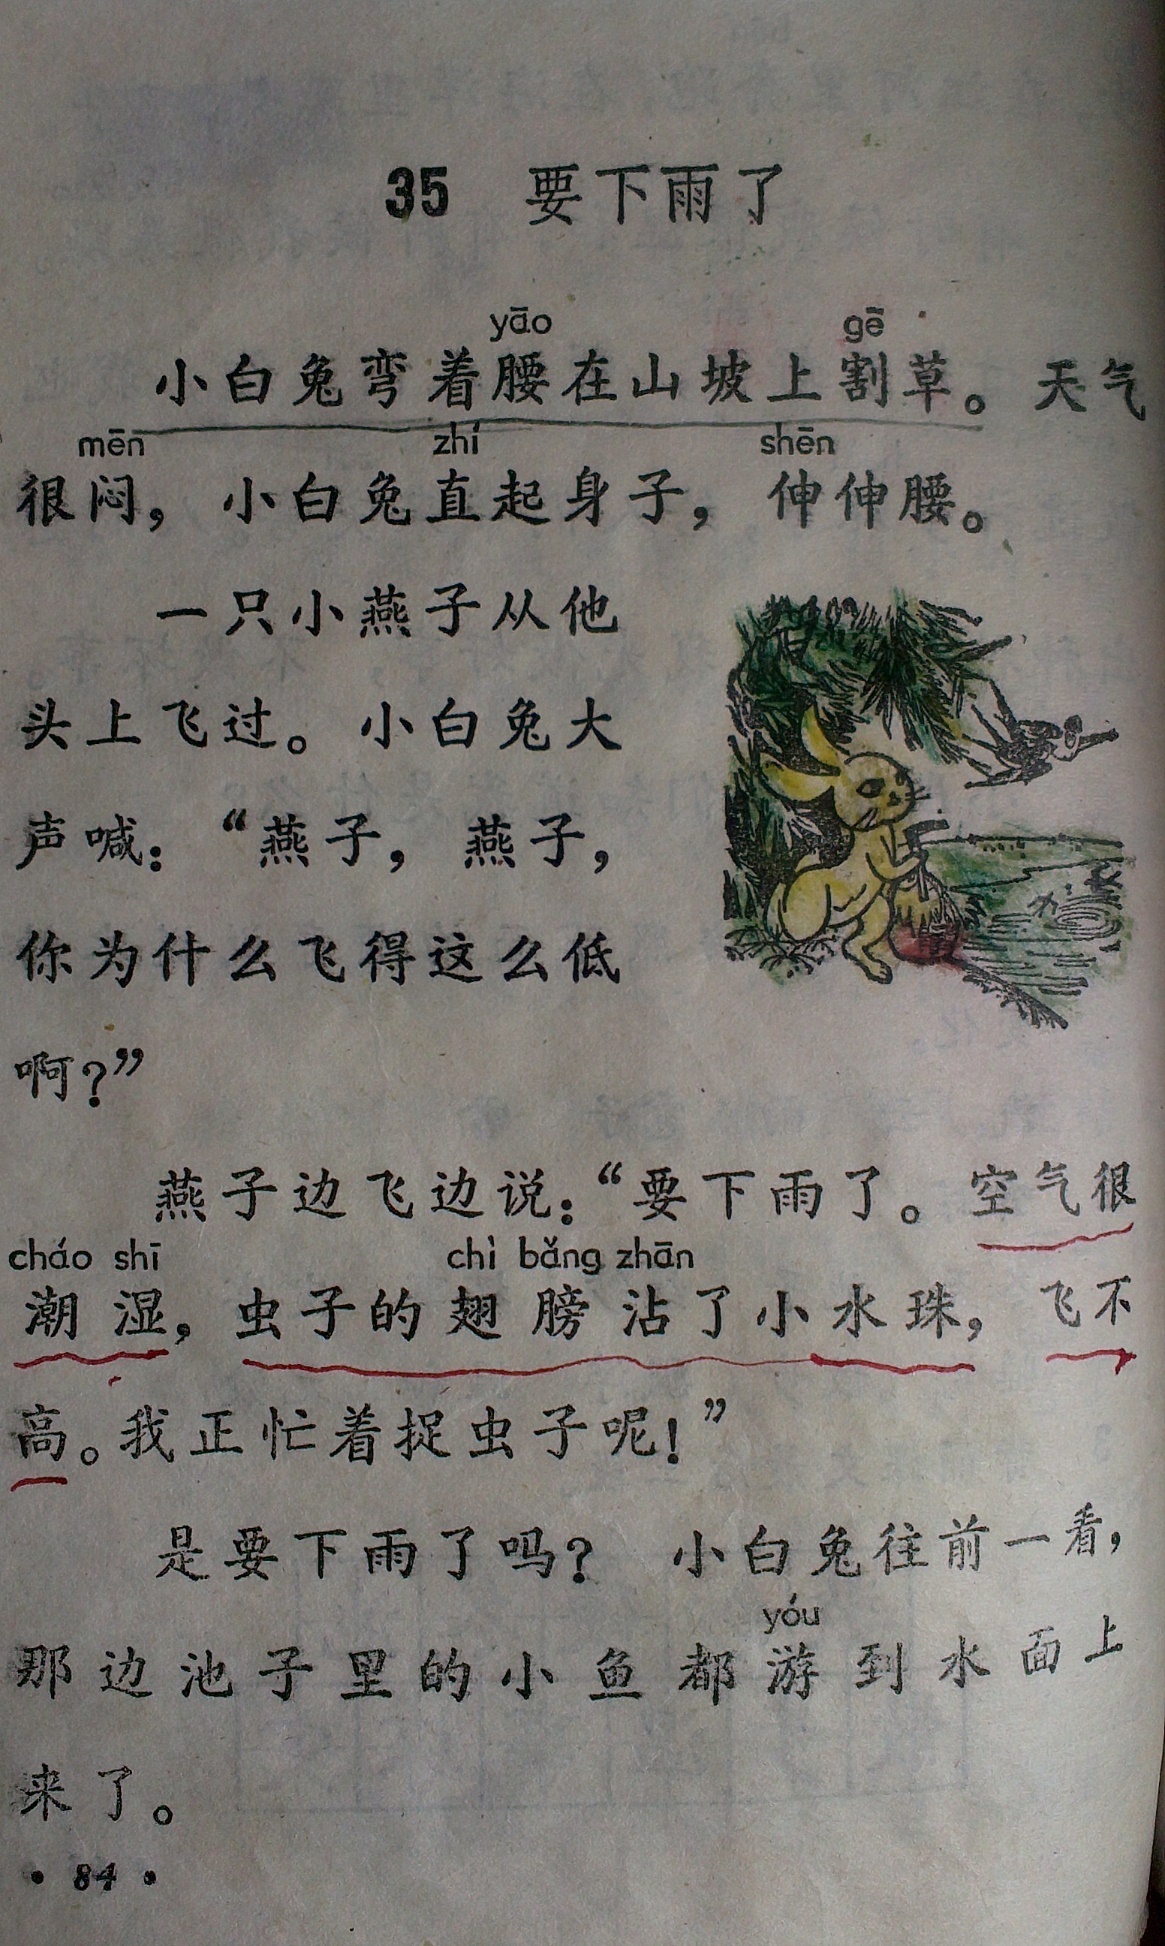 35 要下雨了
yāo gē
小白兔弯着腰在山坡上割草。天气
mēn zhí shēn
很闷，小白兔直起身子，伸伸腰。
一只小燕子从他
头上飞过。小白兔大
声喊：“燕子，燕子，
你为什么飞得这么低
啊？”
燕子边飞边说：“要下雨了。空气很
cháo shī chì bǎng zhān
潮湿，虫子的翅膀沾了小水珠，飞不
高。我正忙着捉虫子呢！”
是要下雨了吗？小白兔往前一看，
yóu
那边池子里的小鱼都游到水面上
来了。
· 84 ·